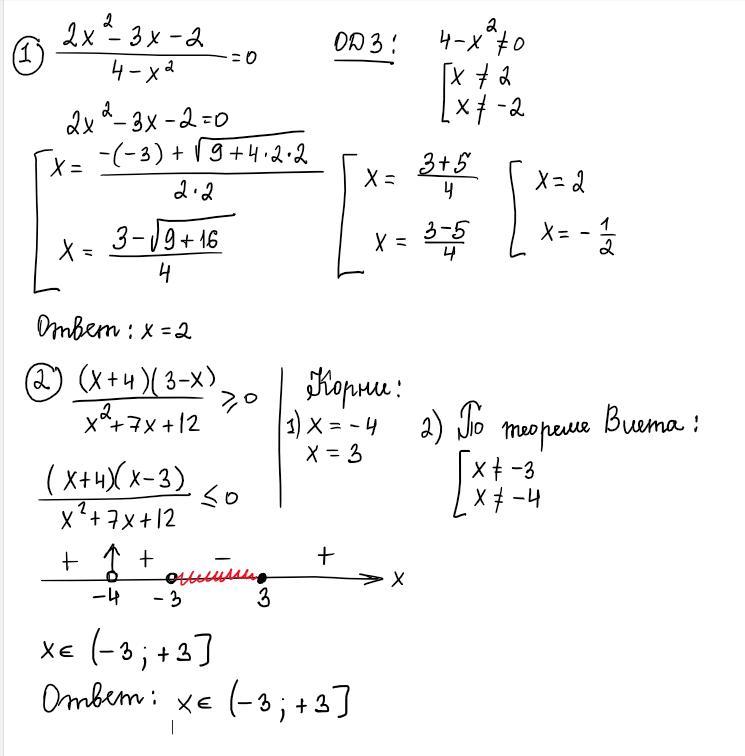 ① (2x² - 3x - 2)/(4 - x²) = 0
ОДЗ: 4 - x² ≠ 0
[x ≠ 2
x ≠ -2
2x² - 3x - 2 = 0
[x = (-(-3) + √(9 + 4·2·2))/(2·2)
x = (3 - √(9 + 16))/4
[x = (3+5)/4
x = (3-5)/4
[x = 2
x = -1/2
Ответ: x = 2
② ((x+4)(3-x))/(x² + 7x + 12) ⩾ 0
((x+4)(x-3))/(x² + 7x + 12) ≤ 0
Корни:
1) x = -4
x = 3
2) По теореме Виета:
[x ≠ -3
x ≠ -4
+ + - +
-4 -3 3 x
x ∈ (-3; +3]
Ответ: x ∈ (-3; +3]